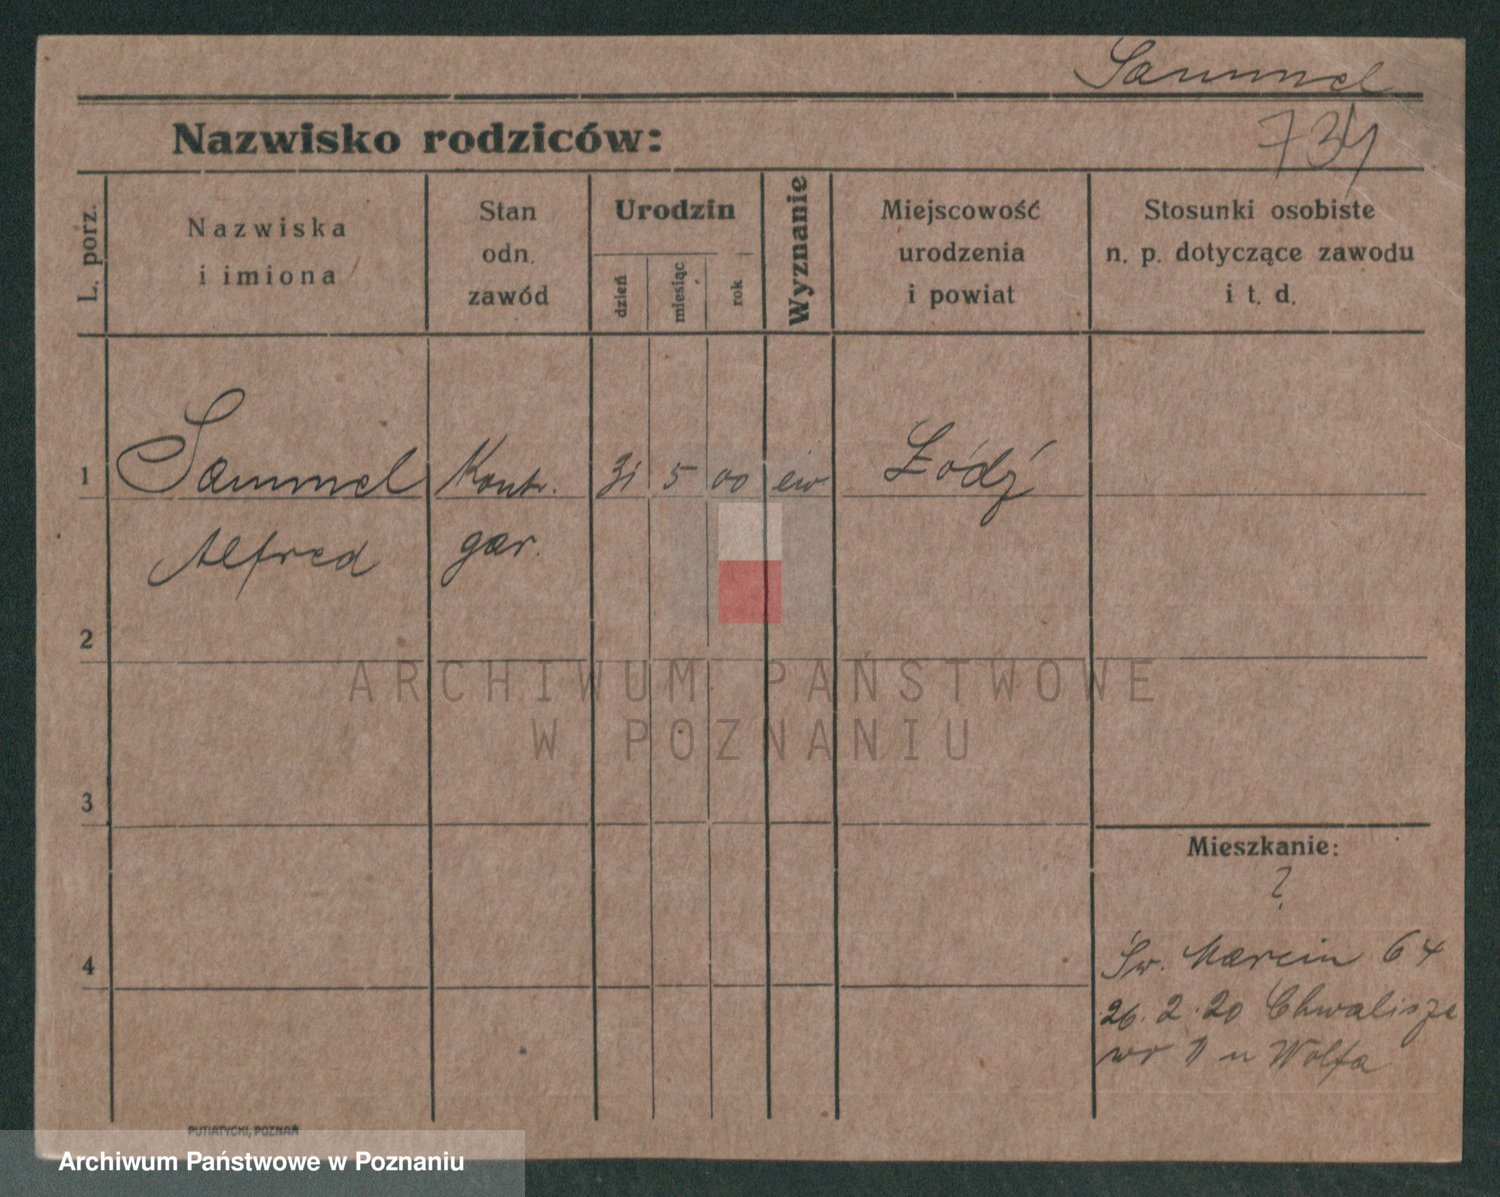 Sammel
734
Nazwisko rodziców:
L. porz.
Nazwiska
i imiona
Stan
odn.
zawód
Urodzin
dzień
miesiąc
rok
Wyznanie
Miejscowość
urodzenia
i powiat
Stosunki osobiste
n. p. dotyczące zawodu
i t. d.
1 Sammel Kontr. 31 5 00 ew Łódź
Alfred gar.
2
3
4
ARCHIWUM PAŃSTWOWE
W POZNANIU
Mieszkanie:
?
Św. Marcin 64
26.2.20 Chwalisze
wo u Wolfa
PUTIATYCKI, POZNAŃ
Archiwum Państwowe w Poznaniu